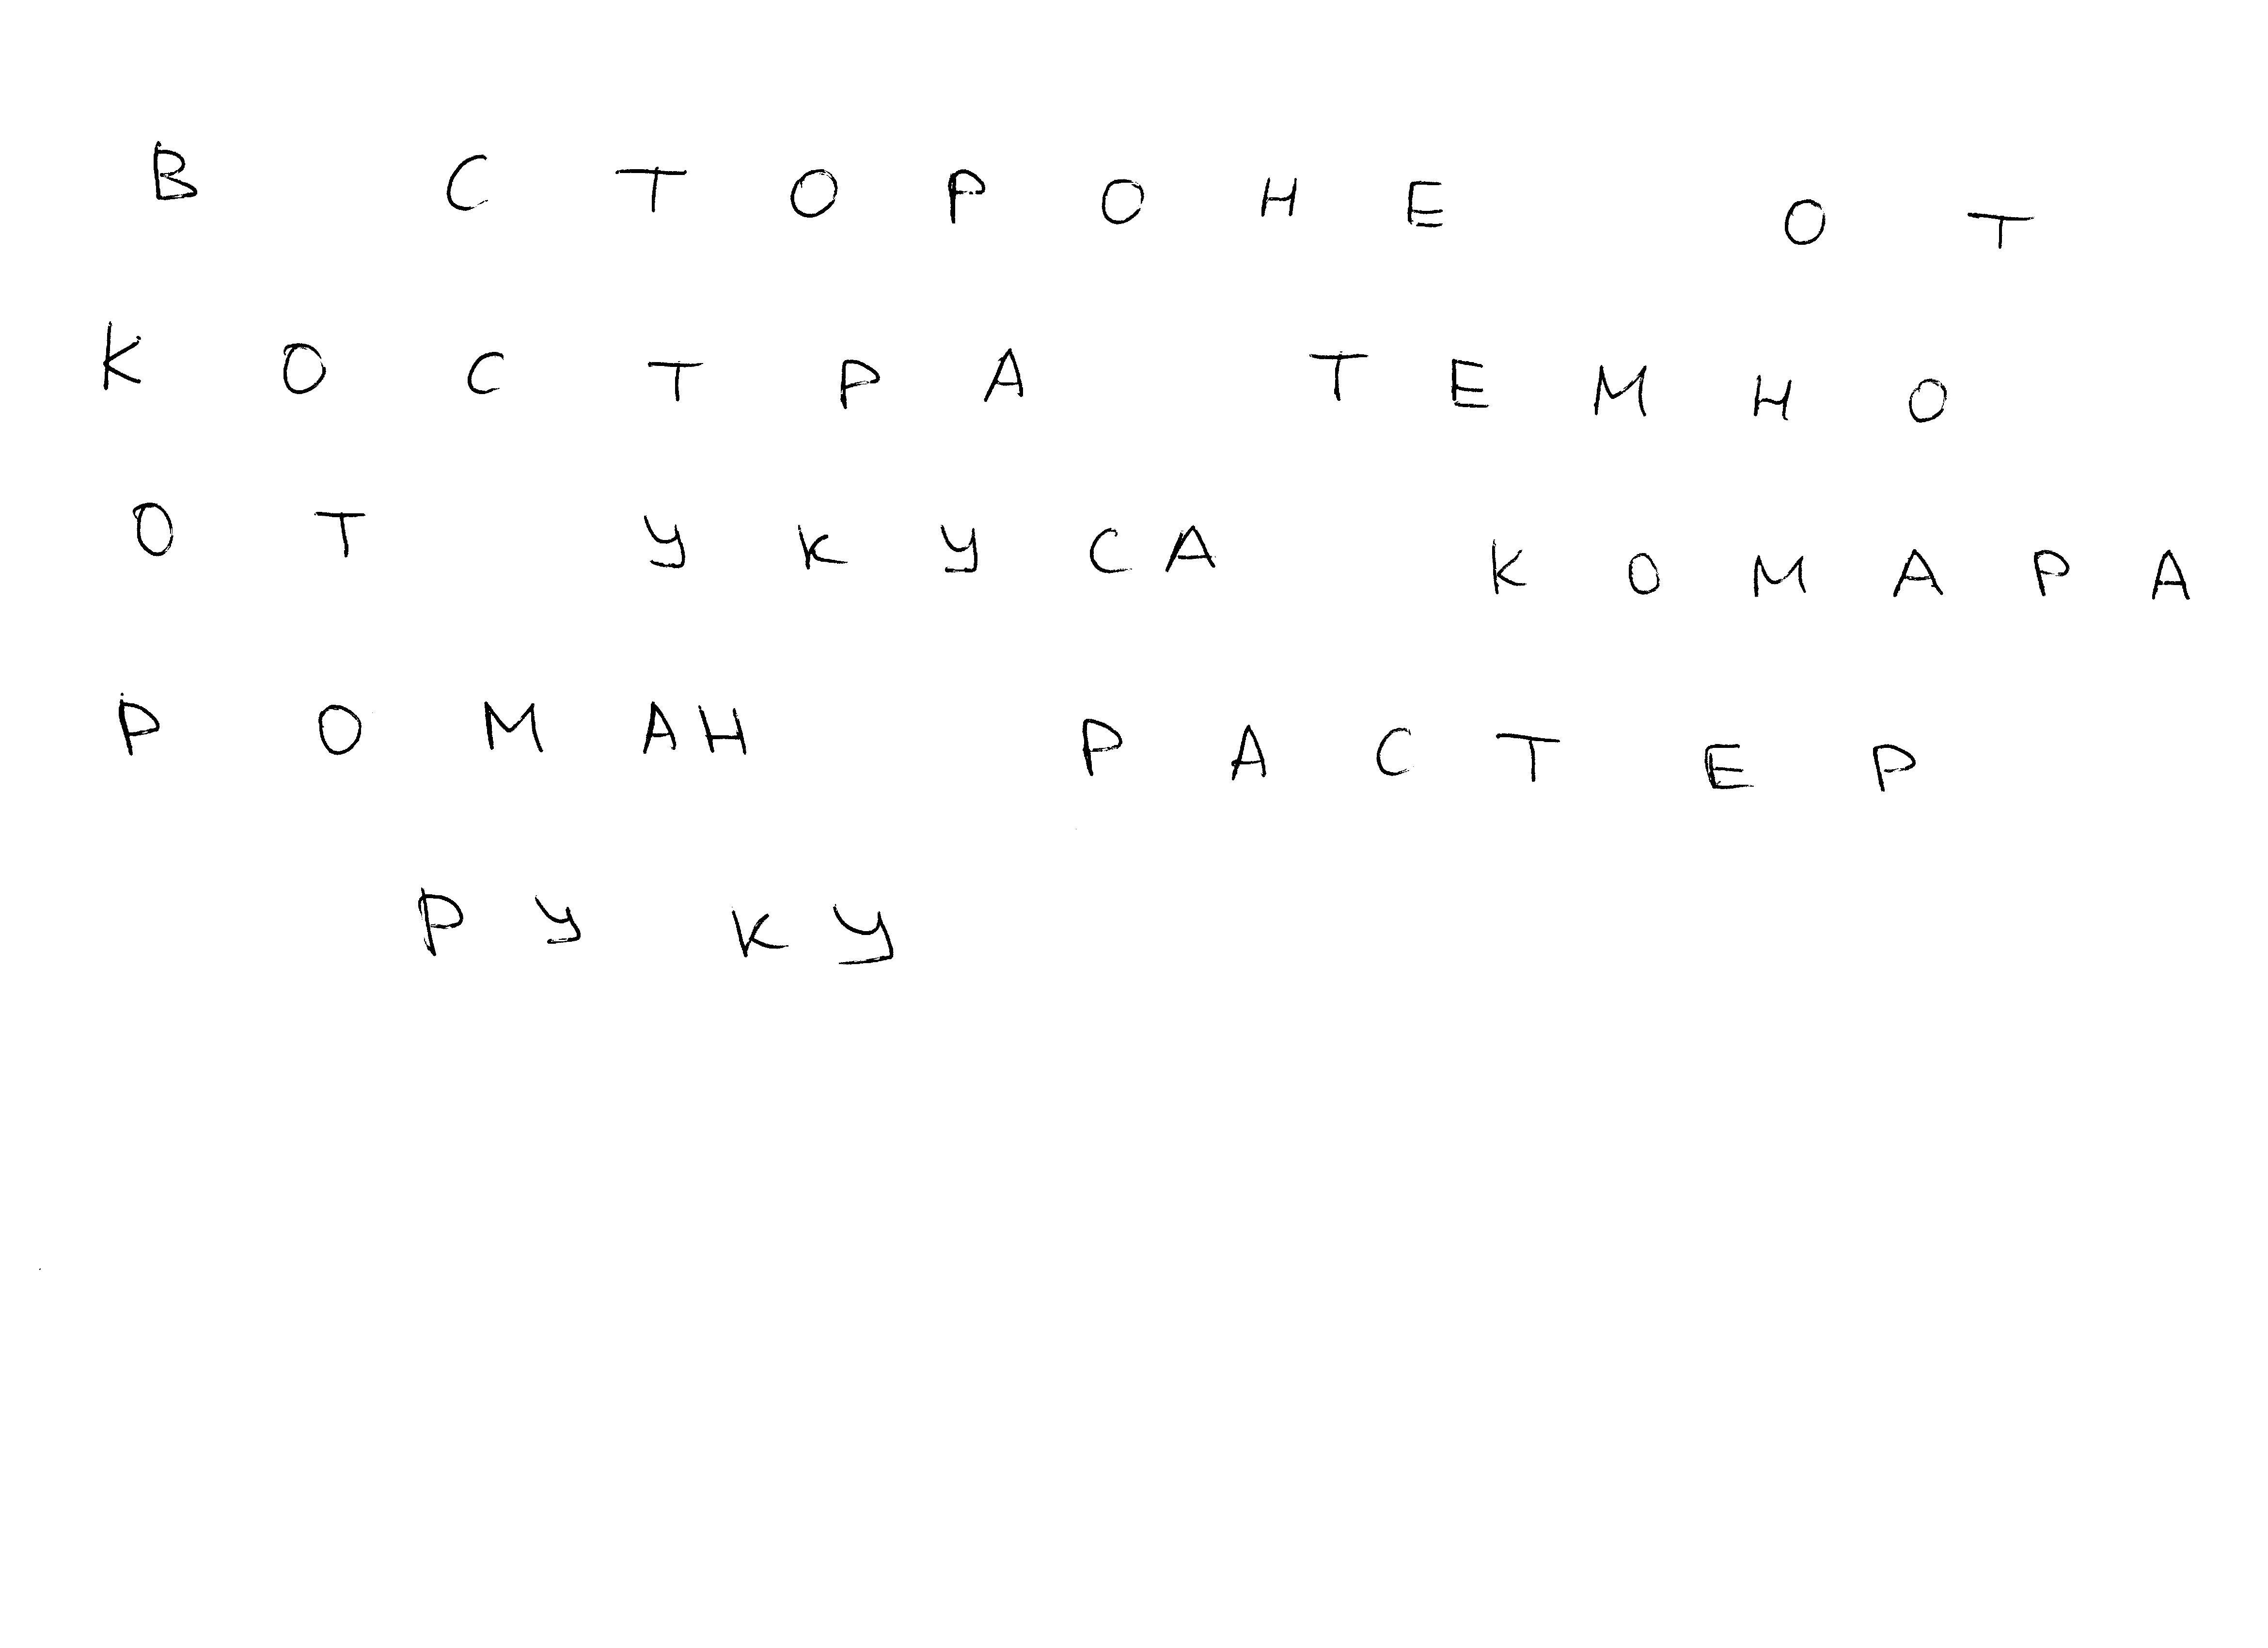 В СТОРОНЕ ОТ
КОСТРА ТЕМНО
ОТ УКУСА КОМАРА
РОМАН РАСТЕР
РУКУ